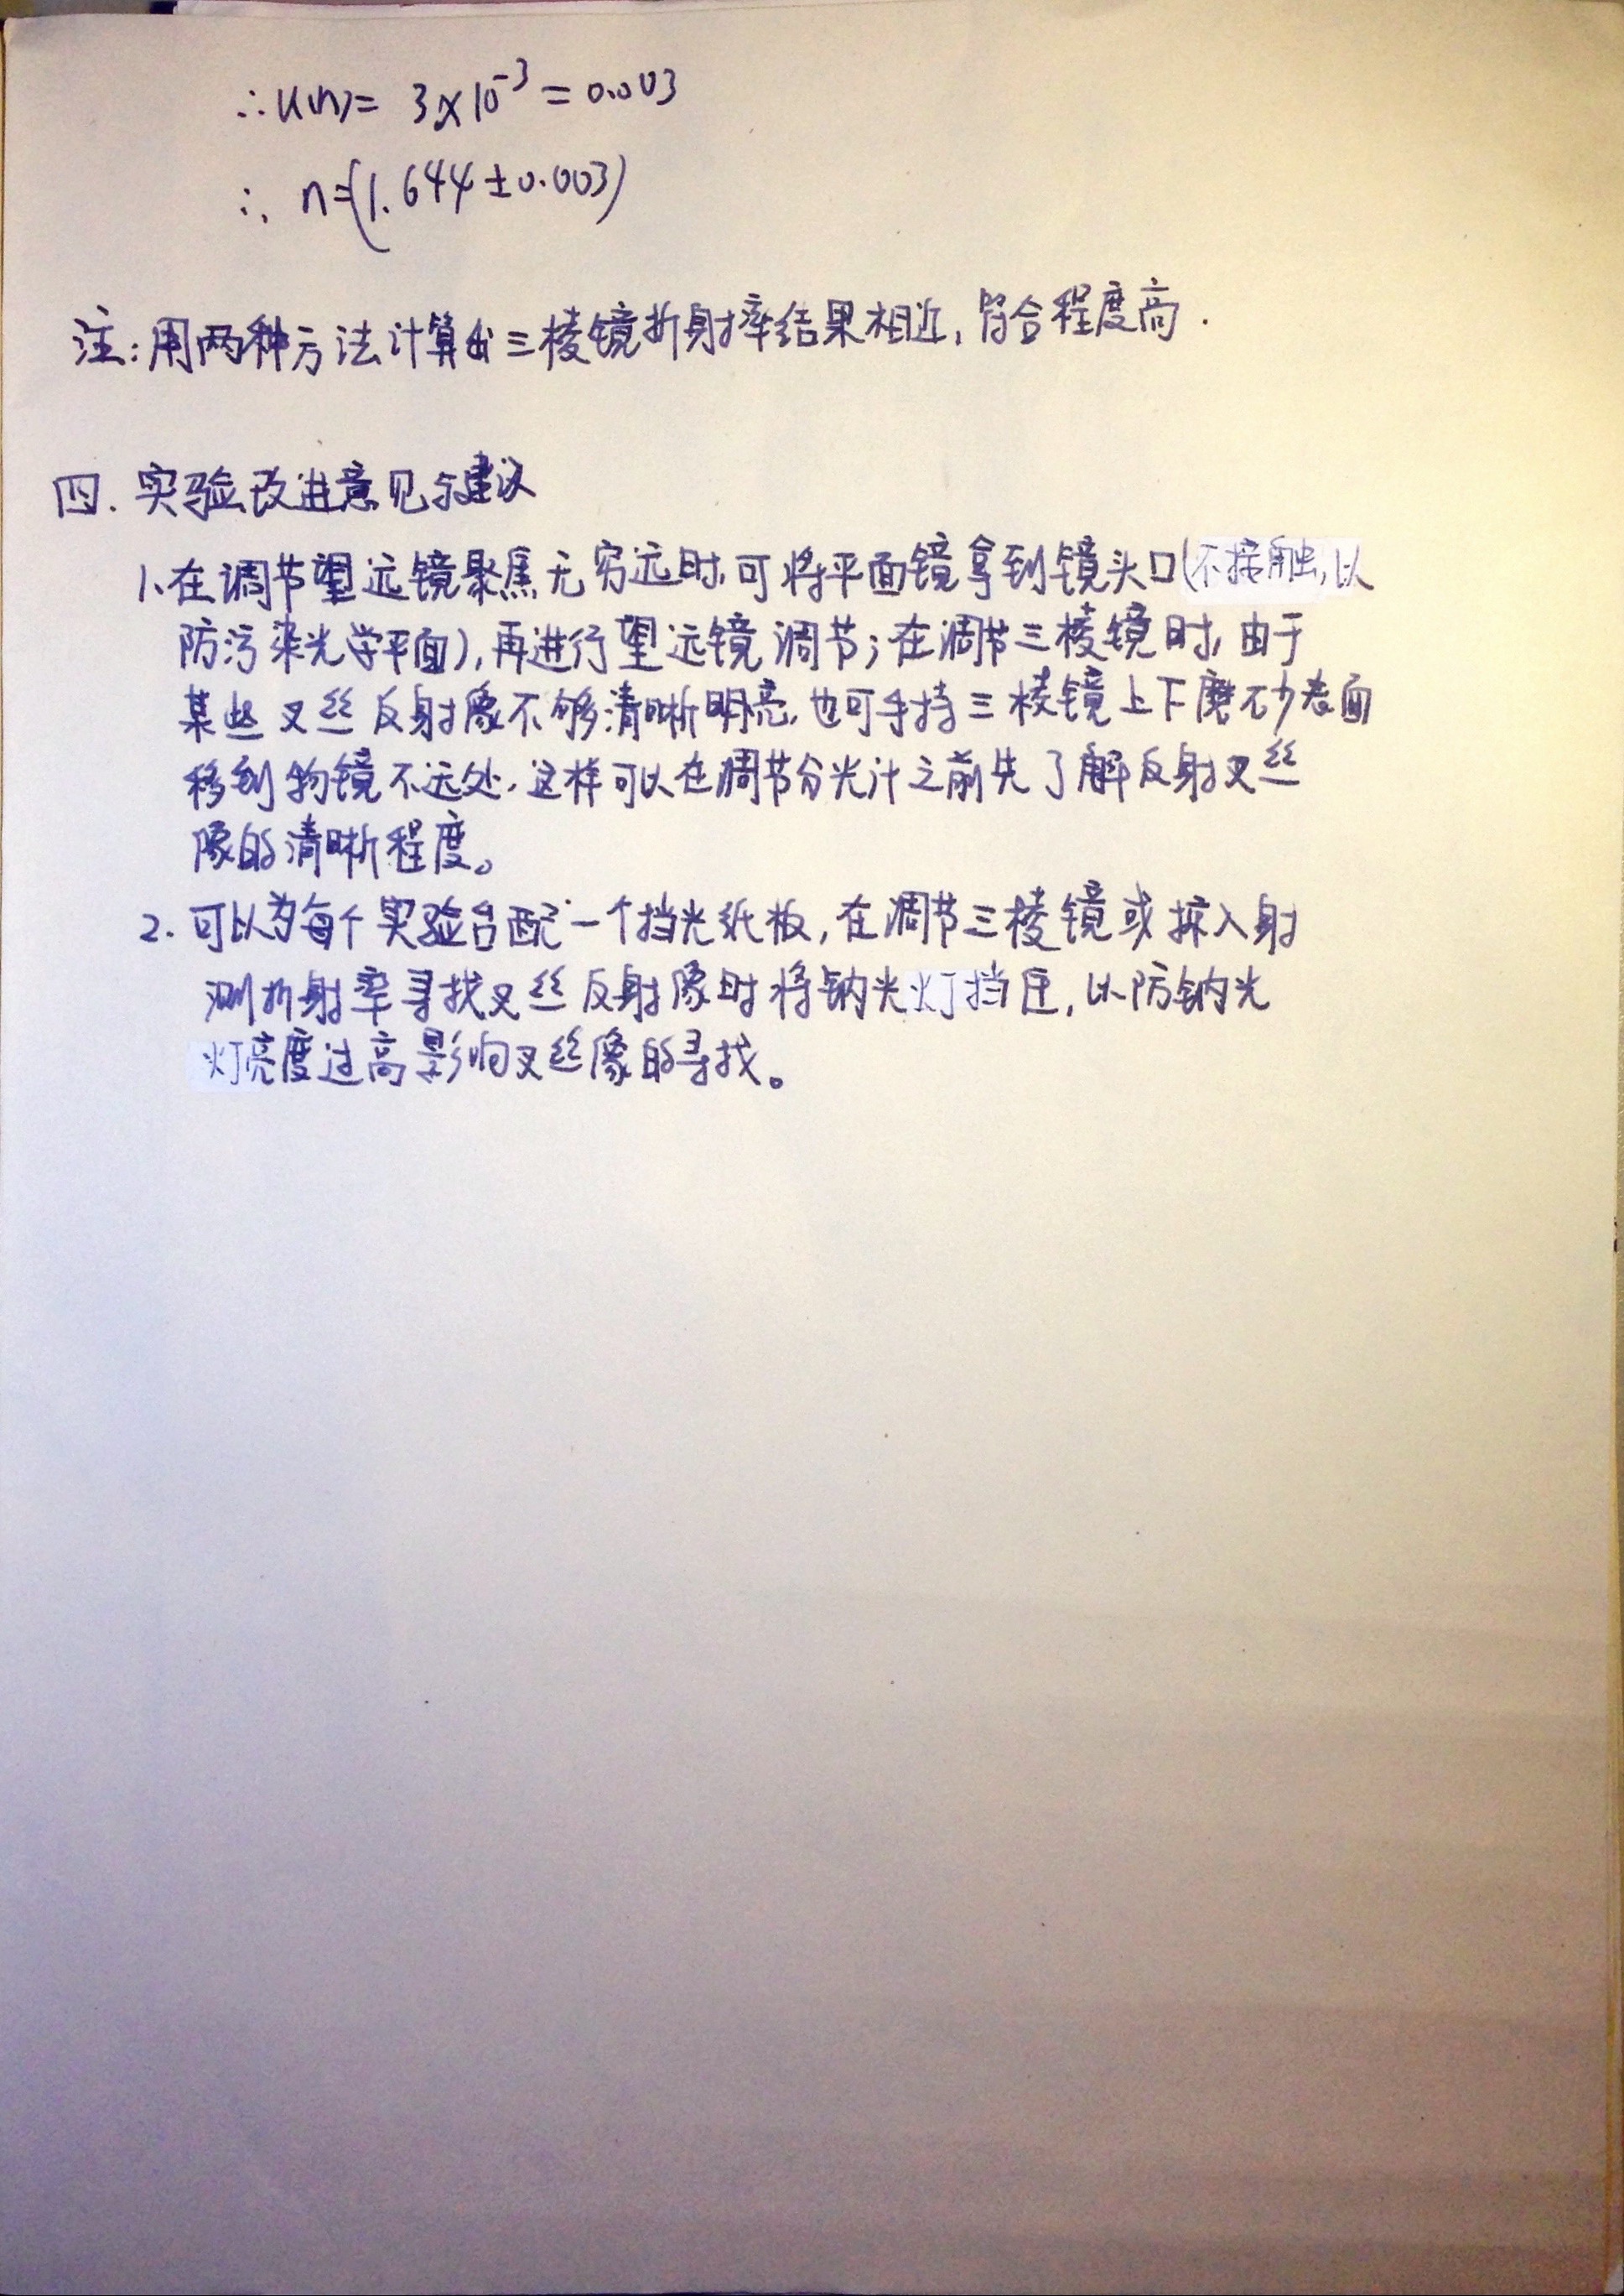 ∴u(n)= 3×10⁻³ = 0.003
∴ n=(1.644±0.003)
注:用两种方法计算出三棱镜折射率结果相近,符合程度高.
四. 实验改进意见与建议
1.在调节望远镜聚焦无穷远时,可将平面镜拿到镜头口(不接触,以
防污染光学平面),再进行望远镜调节;在调节三棱镜时,由于
某些叉丝反射像不够清晰明亮,也可手持三棱镜上下磨砂表面
移到物镜不远处,这样可以在调节分光计之前先了解反射叉丝
像的清晰程度。
2. 可以为每个实验台配一个挡光纸板,在调节三棱镜或掠入射
测折射率寻找叉丝反射像时将钠光灯挡住,以防钠光
灯亮度过高影响叉丝像的寻找。